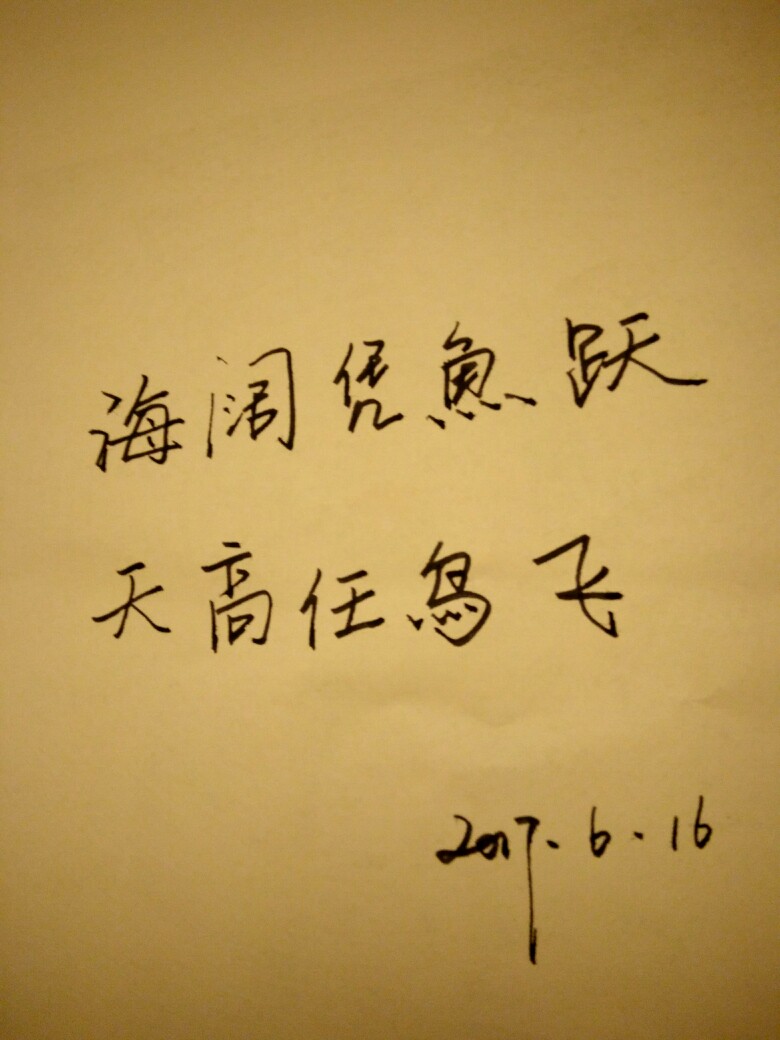 海阔凭魚跃
天高任鸟飞
2017.6.16